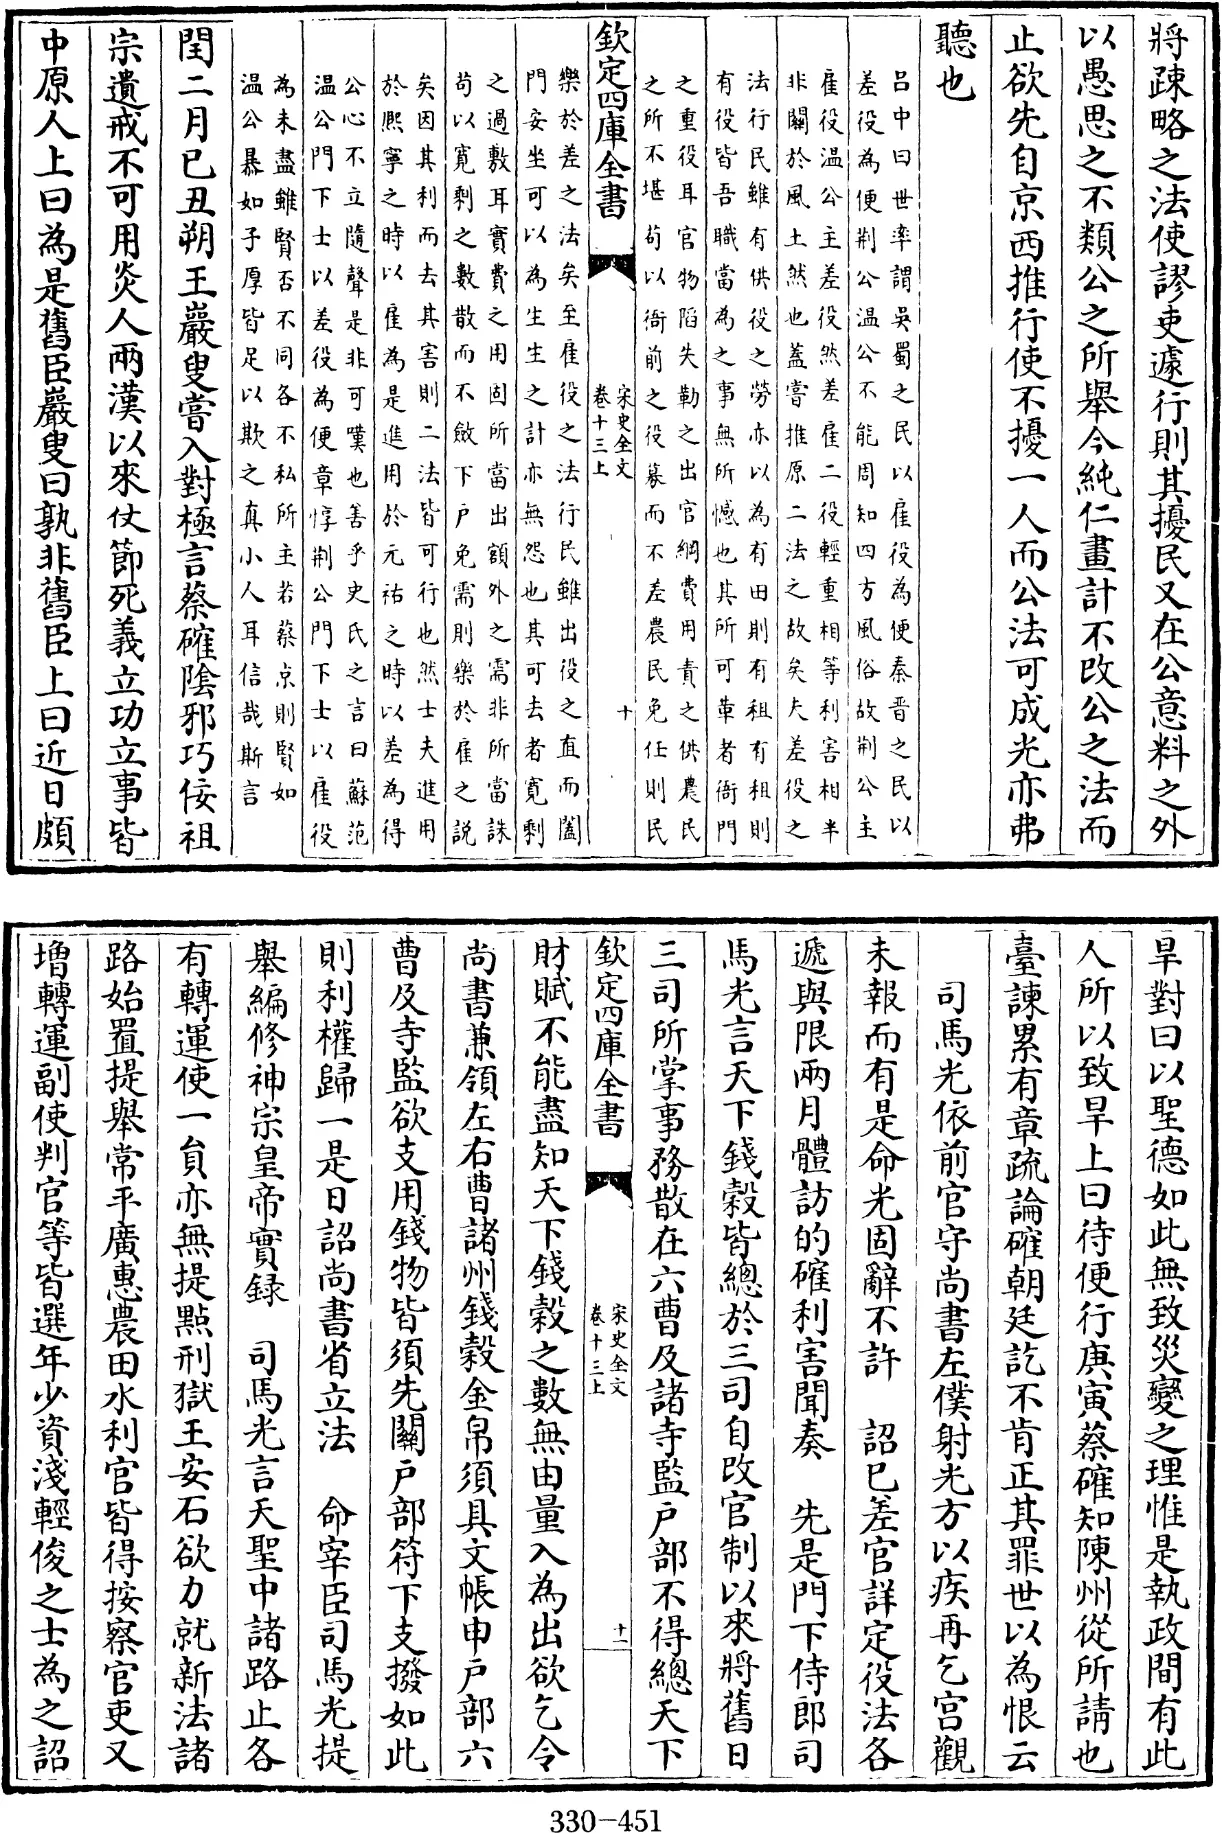 將疎略之法使謬吏遽行則其擾民又在公意料之外
以愚思之不類公之所舉今純仁畫計不改公之法而
止欲先自京西推行使不擾一人而公法可成光亦弗
聽也
呂中曰世率謂吳蜀之民以雇役為便秦晋之民以
差役為便荆公温公不能周知四方風俗故荆公主
雇役温公主差役然差雇二役輕重相等利害相半
非關於風土然也蓋嘗推原二法之故矣夫差役之
法行民雖有供役之勞亦以為有田則有租有租則
有役皆吾職當為之事無所憾也其所可革者衙門
之重役耳官物陷失勒之出官綱費用責之供農民
之所不堪苟以衙前之役募而不差農民免任則民
欽定四庫全書
宋史全文
卷十三上
十
樂於差之法矣至雇役之法行民雖出役之直而闔
門安坐可以為生生之計亦無怨也其可去者寛剩
之過敷耳實費之用固所當出額外之需非所當誅
苟以寛剩之數散而不斂下户免需則樂於雇之説
矣因其利而去其害則二法皆可行也然士夫進用
於熈寧之時以雇為是進用於元祐之時以差為得
公心不立隨聲是非可嘆也善乎史氏之言曰蘇范
温公門下士以差役為便章惇荆公門下士以雇役
為未盡雖賢否不同各不私所主若蔡京則賢如
温公暴如子厚皆足以欺之真小人耳信哉斯言
閏二月已丑朔王巖叟嘗入對極言蔡確陰邪巧佞祖
宗遺戒不可用炎人兩漢以來仗節死義立功立事皆
中原人上曰為是舊臣巖叟曰孰非舊臣上曰近日頗
旱對曰以聖德如此無致災變之理惟是執政間有此
人所以致旱上曰待便行庚寅蔡確知陳州從所請也
臺諫累有章疏論確朝廷訖不肯正其罪世以為恨云
司馬光依前官守尚書左僕射光方以疾再乞宫觀
未報而有是命光固辭不許　詔已差官詳定役法各
遞與限兩月體訪的確利害聞奏　先是門下侍郎司
馬光言天下錢穀皆總於三司自改官制以來將舊日
三司所掌事務散在六曹及諸寺監户部不得總天下
欽定四庫全書
宋史全文
卷十三上
十一
財賦不能盡知天下錢穀之數無由量入為出欲乞令
尚書兼領左右曹諸州錢穀金帛須具文帳申户部六
曹及寺監欲支用錢物皆須先關户部符下支撥如此
則利權歸一是日詔尚書省立法　命宰臣司馬光提
舉編修神宗皇帝實録　司馬光言天聖中諸路止各
有轉運使一員亦無提點刑獄王安石欲力就新法諸
路始置提舉常平廣惠農田水利官皆得按察官吏又
増轉運副使判官等皆選年少資淺輕俊之士為之詔
330-451